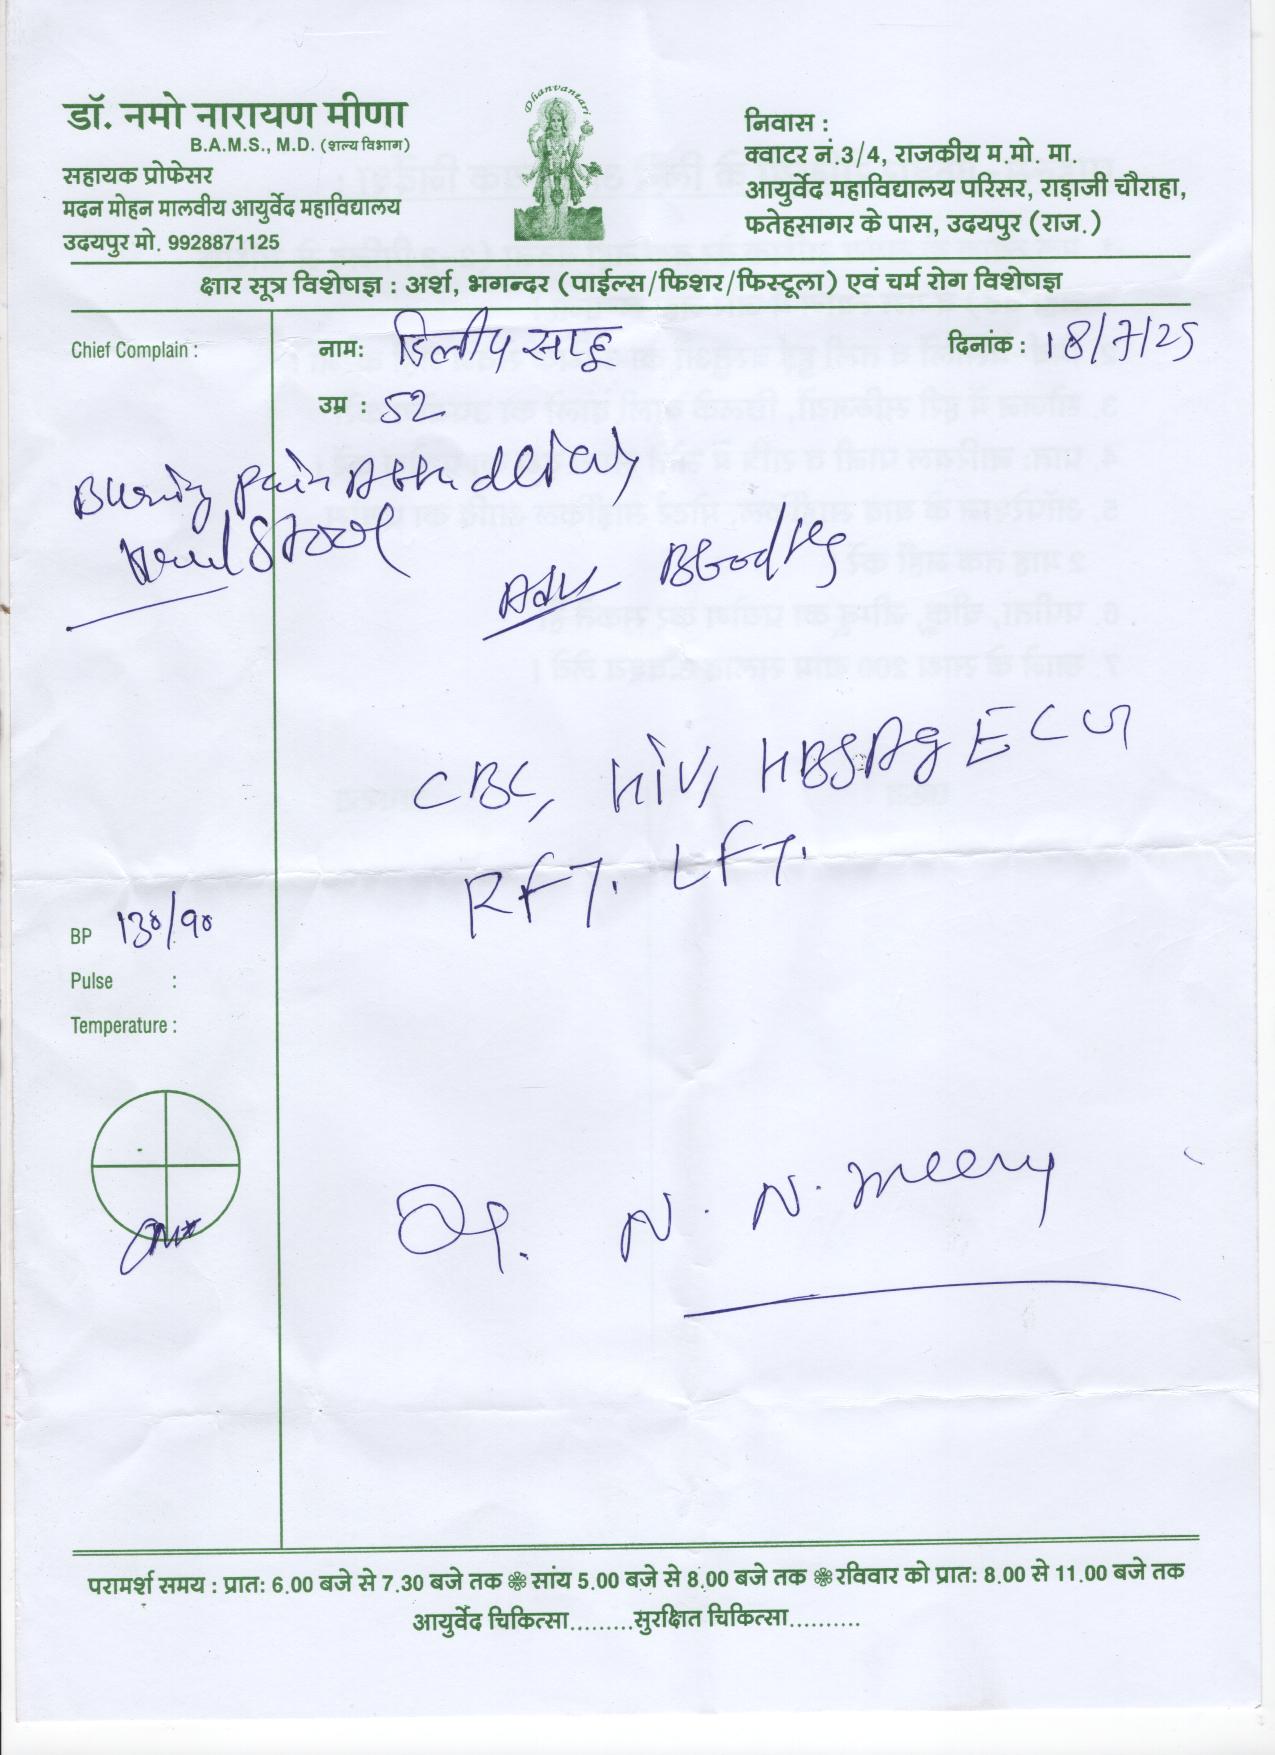 डॉ. नमो नारायण मीणा
B.A.M.S., M.D. (शल्य विभाग)
सहायक प्रोफेसर
मदन मोहन मालवीय आयुर्वेद महाविद्यालय
उदयपुर मो. 9928871125
Dhanvantari
निवास :
क्वाटर नं.3/4, राजकीय म.मो. मा.
आयुर्वेद महाविद्यालय परिसर, राड़ाजी चौराहा,
फतेहसागर के पास, उदयपुर (राज.)
क्षार सूत्र विशेषज्ञ : अर्श, भगन्दर (पाईल्स/फिशर/फिस्टूला) एवं चर्म रोग विशेषज्ञ
Chief Complain :
नामः दिलीप साहू
दिनांक : 18/7/25
उम्र : 52
Burning pain
Stool
Adv Blood
CBC, HIV, HBSAg ECG
RFT. LFT.
BP 130/90
Pulse :
Temperature :
Dr. N. N. Meena
परामर्श समय : प्रातः 6.00 बजे से 7.30 बजे तक ❁ सांय 5.00 बजे से 8.00 बजे तक ❁ रविवार को प्रातः 8.00 से 11.00 बजे तक
आयुर्वेद चिकित्सा.........सुरक्षित चिकित्सा..........